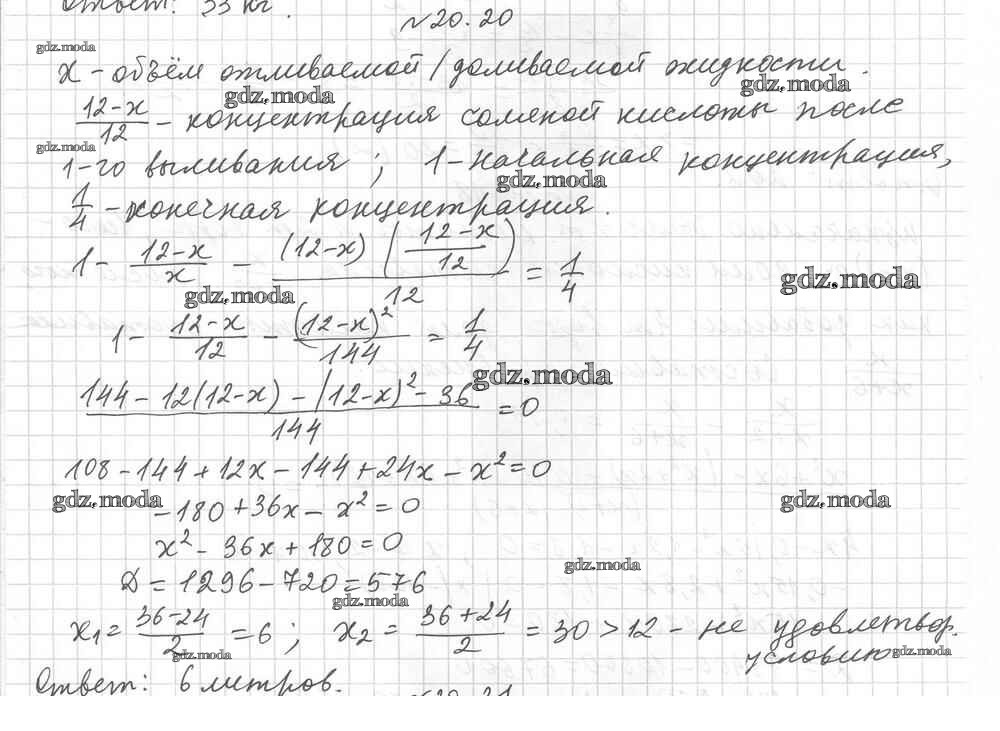 Ответ: 33 кг.
№20.20
gdz.moda
x - объём отливаемой/доливаемой жидкости.
gdz.moda gdz.moda
(12-x)/12 - концентрация соляной кислоты после
gdz.moda
1-го выливания; 1-начальная концентрация,
gdz.moda
1/4 - конечная концентрация.
1 - (12-x)/x - (12-x)((12-x)/12)/12 = 1/4
gdz.moda gdz.moda
1 - (12-x)/12 - (12-x)²/144 = 1/4
gdz.moda
(144 - 12(12-x) - (12-x)² - 36)/144 = 0
108 - 144 + 12x - 144 + 24x - x² = 0
gdz.moda gdz.moda
-180 + 36x - x² = 0
x² - 36x + 180 = 0
gdz.moda
D = 1296 - 720 = 576
gdz.moda
x₁ = (36-24)/2 = 6; x₂ = (36+24)/2 = 30 > 12 - не удовлетвор.
условию
gdz.moda gdz.moda
Ответ: 6 литров.